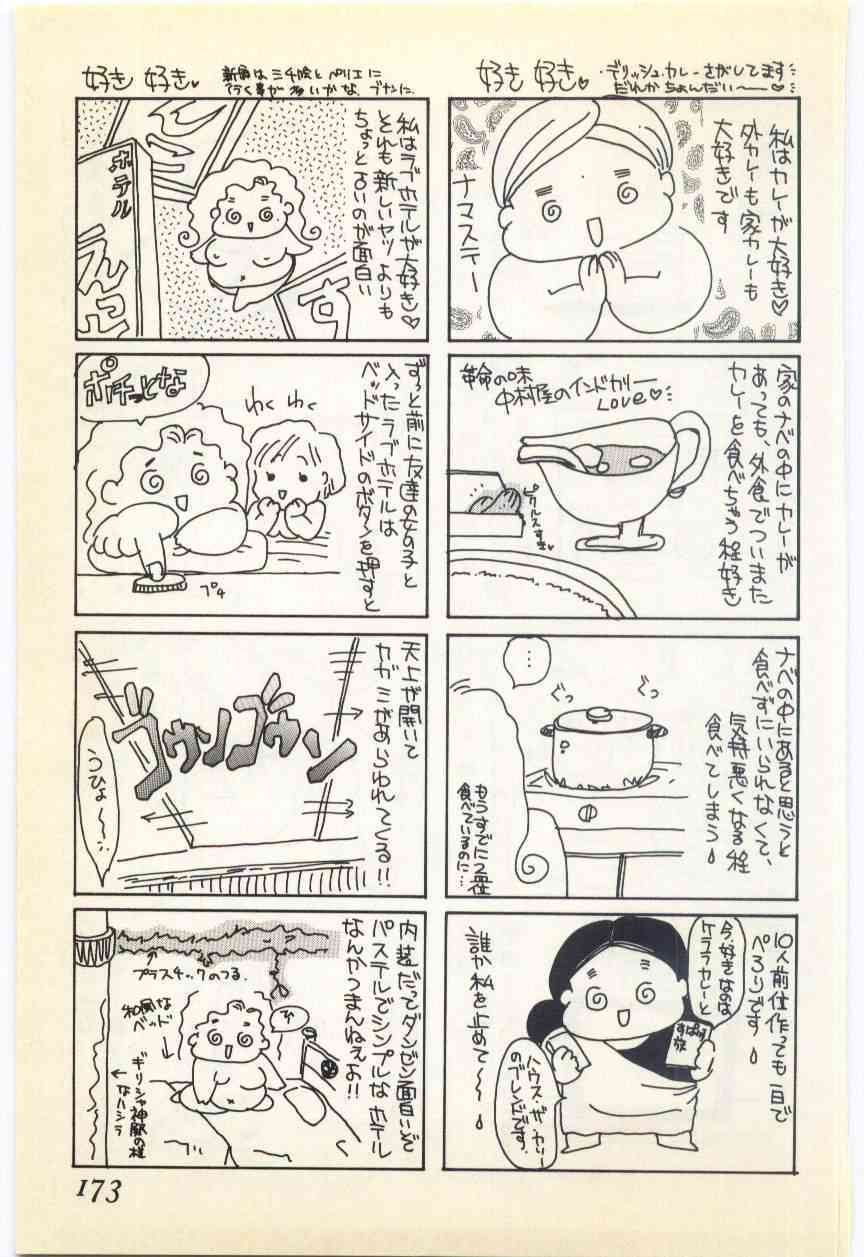 好き 好き♡
デリッシュ・カレーさがしてます
だれかちょんだい〜♡
私はカレーが大好き♡
外カレーも家カレーも
大好きです
ナマステー
家のナベの中にカレーが
あっても、外食でついまた
カレーを食べちゃう程好き
革命の味
中村屋のインドカリー
LOVE♡
ピクルスすき♡
ナベの中にあると思うと
食べずにいられなくて、
気持悪くなる程
食べてしまう
…
ぐっ
ぐっ
もうすでに2杯
食べているのに…
10人前仕作っても一日で
ぺろりです
今、好きなのは
ケララカレーと
ハウス・ザ・カリー
のブレンドです。
誰か私を止めて〜
好き 好き♡
行く事が多いかな ブナンに.
私はラブホテルが大好き♡
それも新しいヤツよりも
ちょっと古いのが面白い
ホテル
ずっと前に友達の女の子と
入ったラブホテルは
ベッドサイドのボタンを押すと
わく わく
ポチっとな
プチ
天上が開いて
カガミがあらわれてくる!!
ゴウンゴウン
うひょ〜〜
内装だってダンゼン面白いぞ
パステルでシンプルなホテル
なんかつまんねえよ!!
プラスチックのつる.
和風な
ベッド
ギリシャ神殿の様
なハシラ
173